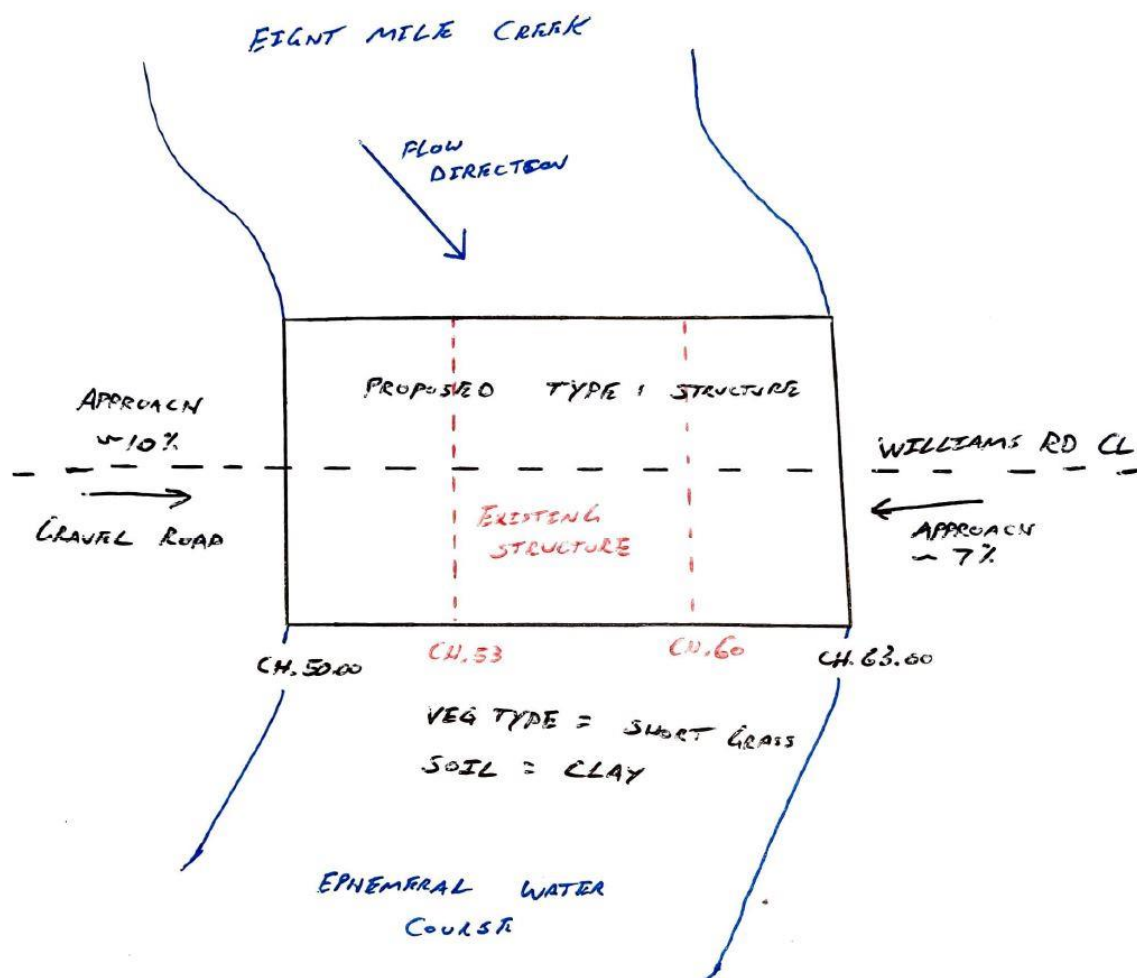 EIGHT MILE CREEK
FLOW
DIRECTION
PROPOSED TYPE 1 STRUCTURE
APPROACH
~10%
WILLIAMS RD CL
GRAVEL ROAD
EXISTING
STRUCTURE
APPROACH
~ 7%
CH.50.00
CH.53
CH.60
CH.63.00
VEG TYPE = SHORT GRASS
SOIL = CLAY
EPHEMERAL WATER
COURSE